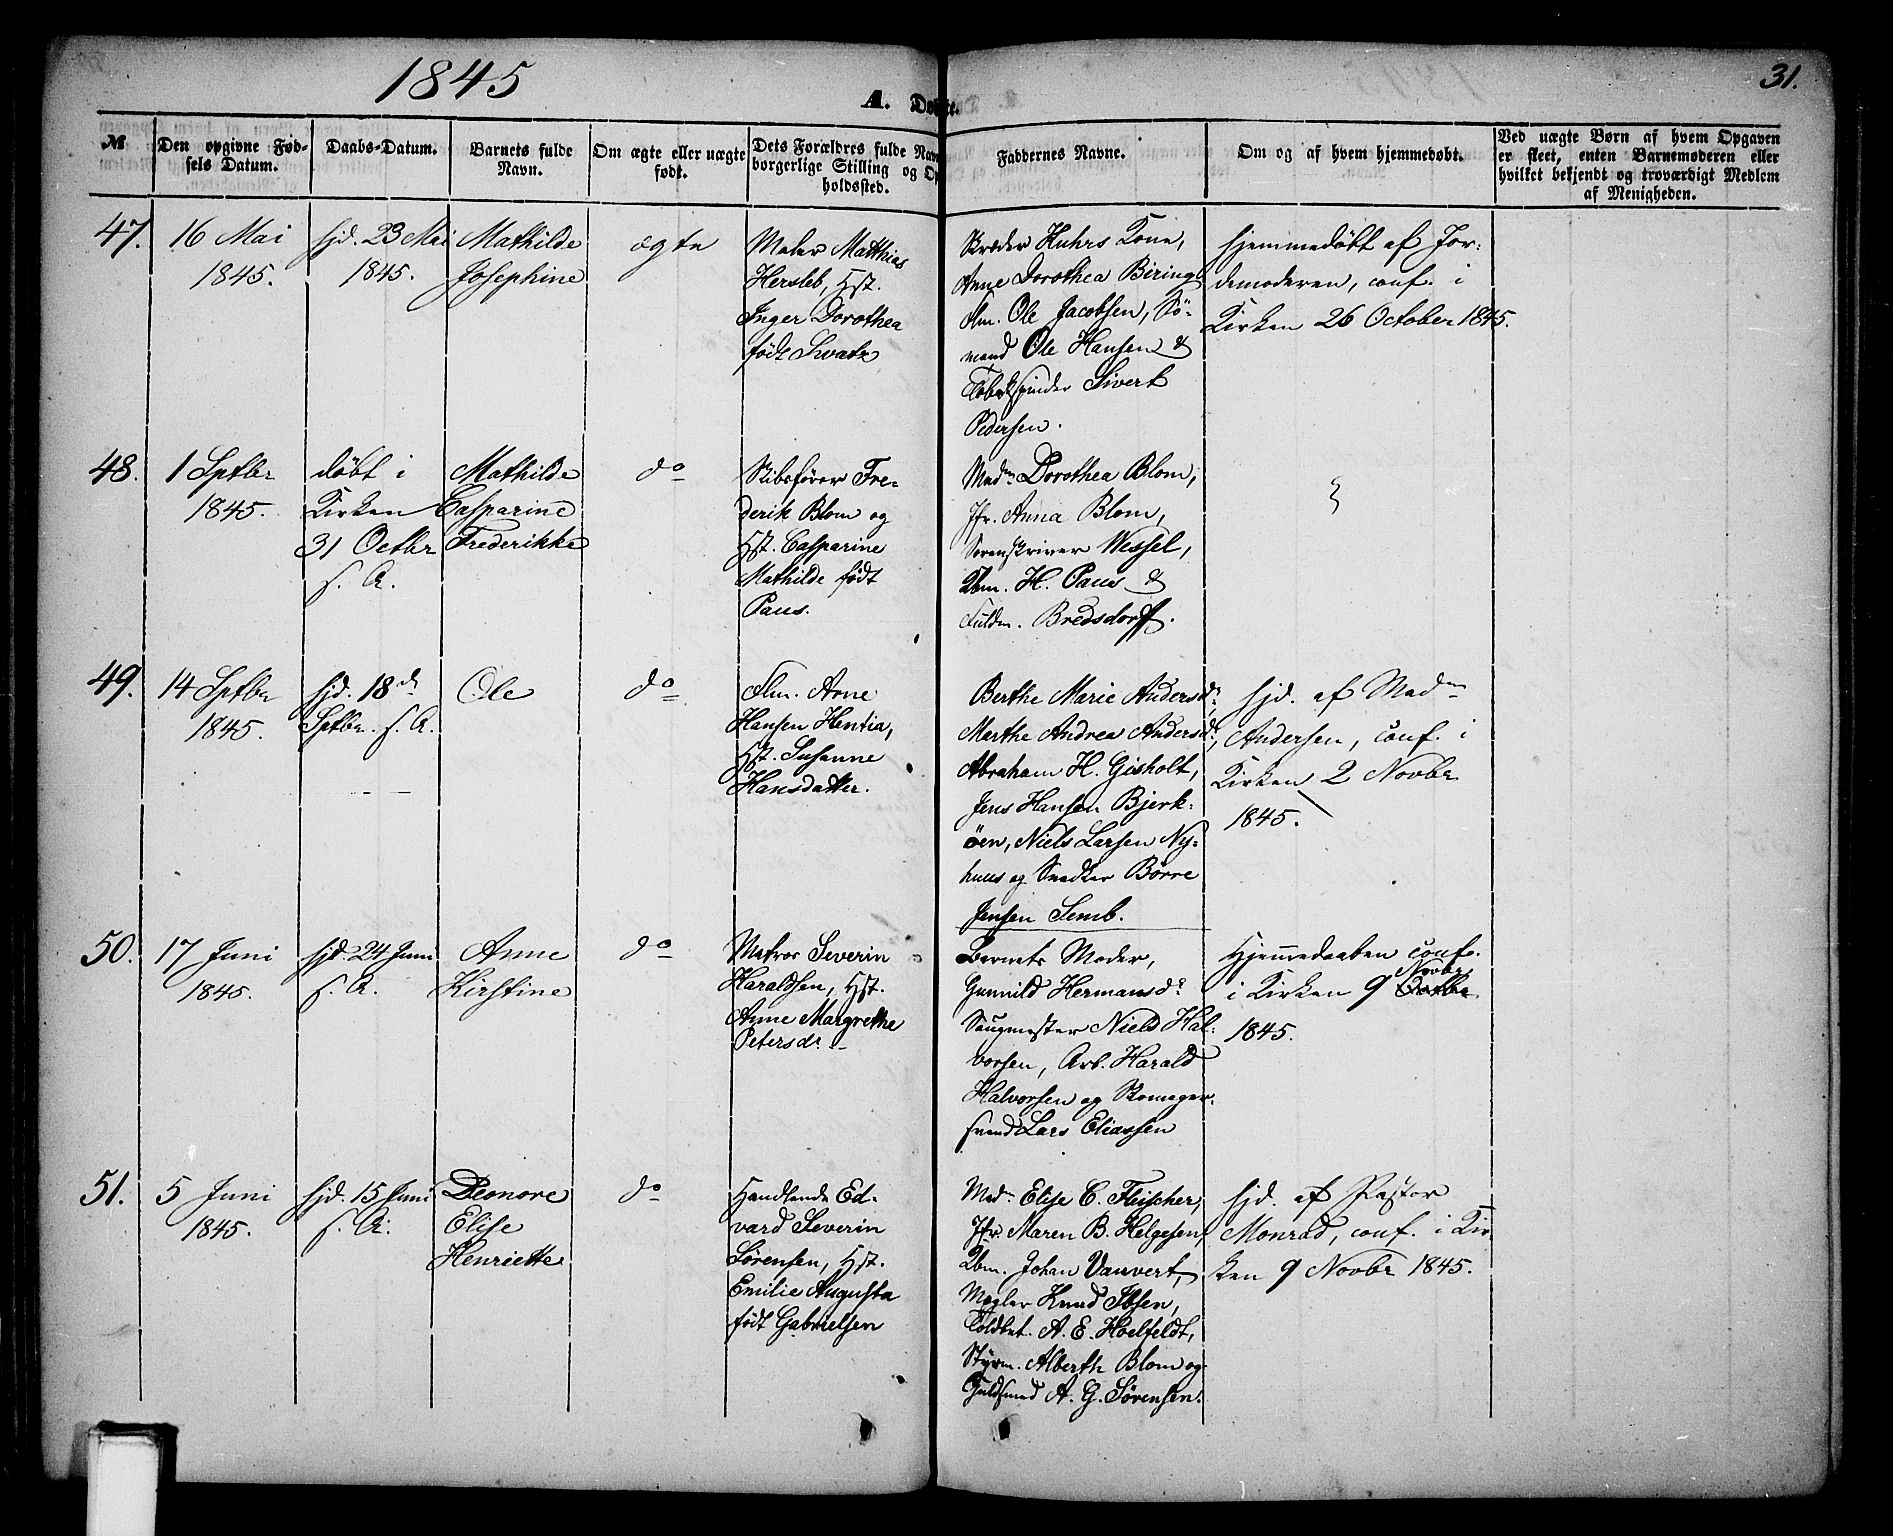 1845
31.
A. Døbte.
№
Den opgivne Fød-
sels Datum.
Daabs-Datum.
Barnets fulde
Navn.
Om ægte eller uægte
født.
Dets Forældres fulde Navn
borgerlige Stilling og Op
holdssted.
Faddernes Navne.
Om og af hvem hjemmedøbt.
Ved uægte Børn af hvem Opgaven
er skeet, enten Barnemoderen eller
hvilket bekjendt og troværdigt Medlem
af Menigheden.
47.
16 Mai
1845.
hjd. 23 Mai
1845.
Mathilde
Josephine
ægte
Maler Matthias
Hersleb, Hst.
Inger Dorothea
født Svartz
Skræder Kuhrs Kone,
Anne Dorothea Biring
Slm. Ole Jacobsen, Sø-
mand Ole Hansen &
Tobakspinder Sivert
Pedersen.
hjemmedøbt af Jor-
demoderen, conf. i
Kirken 26 October 1845.
48.
1 Septbr
1845.
døbt i
Kirken
31 Octbr
s. A.
Mathilde
Casparine
Frederikke
do
Skibsfører Fre-
derik Blom og
Hst. Casparine
Mathilde født
Paus.
Madm Dorothea Blom,
Jfr. Anna Blom,
Sorenskriver Wessel,
Kbm. H. Paus &
Fuldm. Bredsdorff.
49.
14 Septbr
1845.
hjd. 18de
Septbr. s. A.
Ole
do
Slm. Arne
Hansen Hentia,
Hst. Susanne
Hansdatter.
Berthe Marie Andersdr,
Marthe Andrea Andersdr,
Abraham H. Gisholt,
Jens Hansen Bjerk-
øen, Niels Larsen Ny-
huus og Snedker Børre
Jensen Semb.
hjd. af Madm
Andersen, conf. i
Kirken 2 Novbr
1845.
50.
17 Juni
1845.
hjd. 24 Juni
s. A.
Anne
Kirstine
do
Matros Severin
Haraldsen, Hst.
Anne Margrethe
Petersdr.
Barnets Moder,
Gunnild Hermansdr
Saugmester Niels Hal-
vorsen, Arb. Harald
Halvorsen og Skomager-
svend Lars Eliassen
Hjemmedaaben conf.
Novbr
i Kirken 9 Octbr
1845.
51.
5 Juni
1845.
hjd. 15 Juni
s. A.
Deonore
Elise
Henriette
do
Handlende Ed-
vard Severin
Sørensen, Hst.
Emilie Augusta
født Gabrielsen
Madm Elise C. Fleischer,
Jfr Maren B. Helgesen,
Kbm. Johan Vauvert,
Mægler Knud Ibsen,
Toldbet. A. E. Hoelfeldt,
Styrm. Alberth Blom og
Guldsmed A. G. Sørensen.
hjd. af Pastor
Monrad, conf. i Kir
ken 9 Novbr 1845.